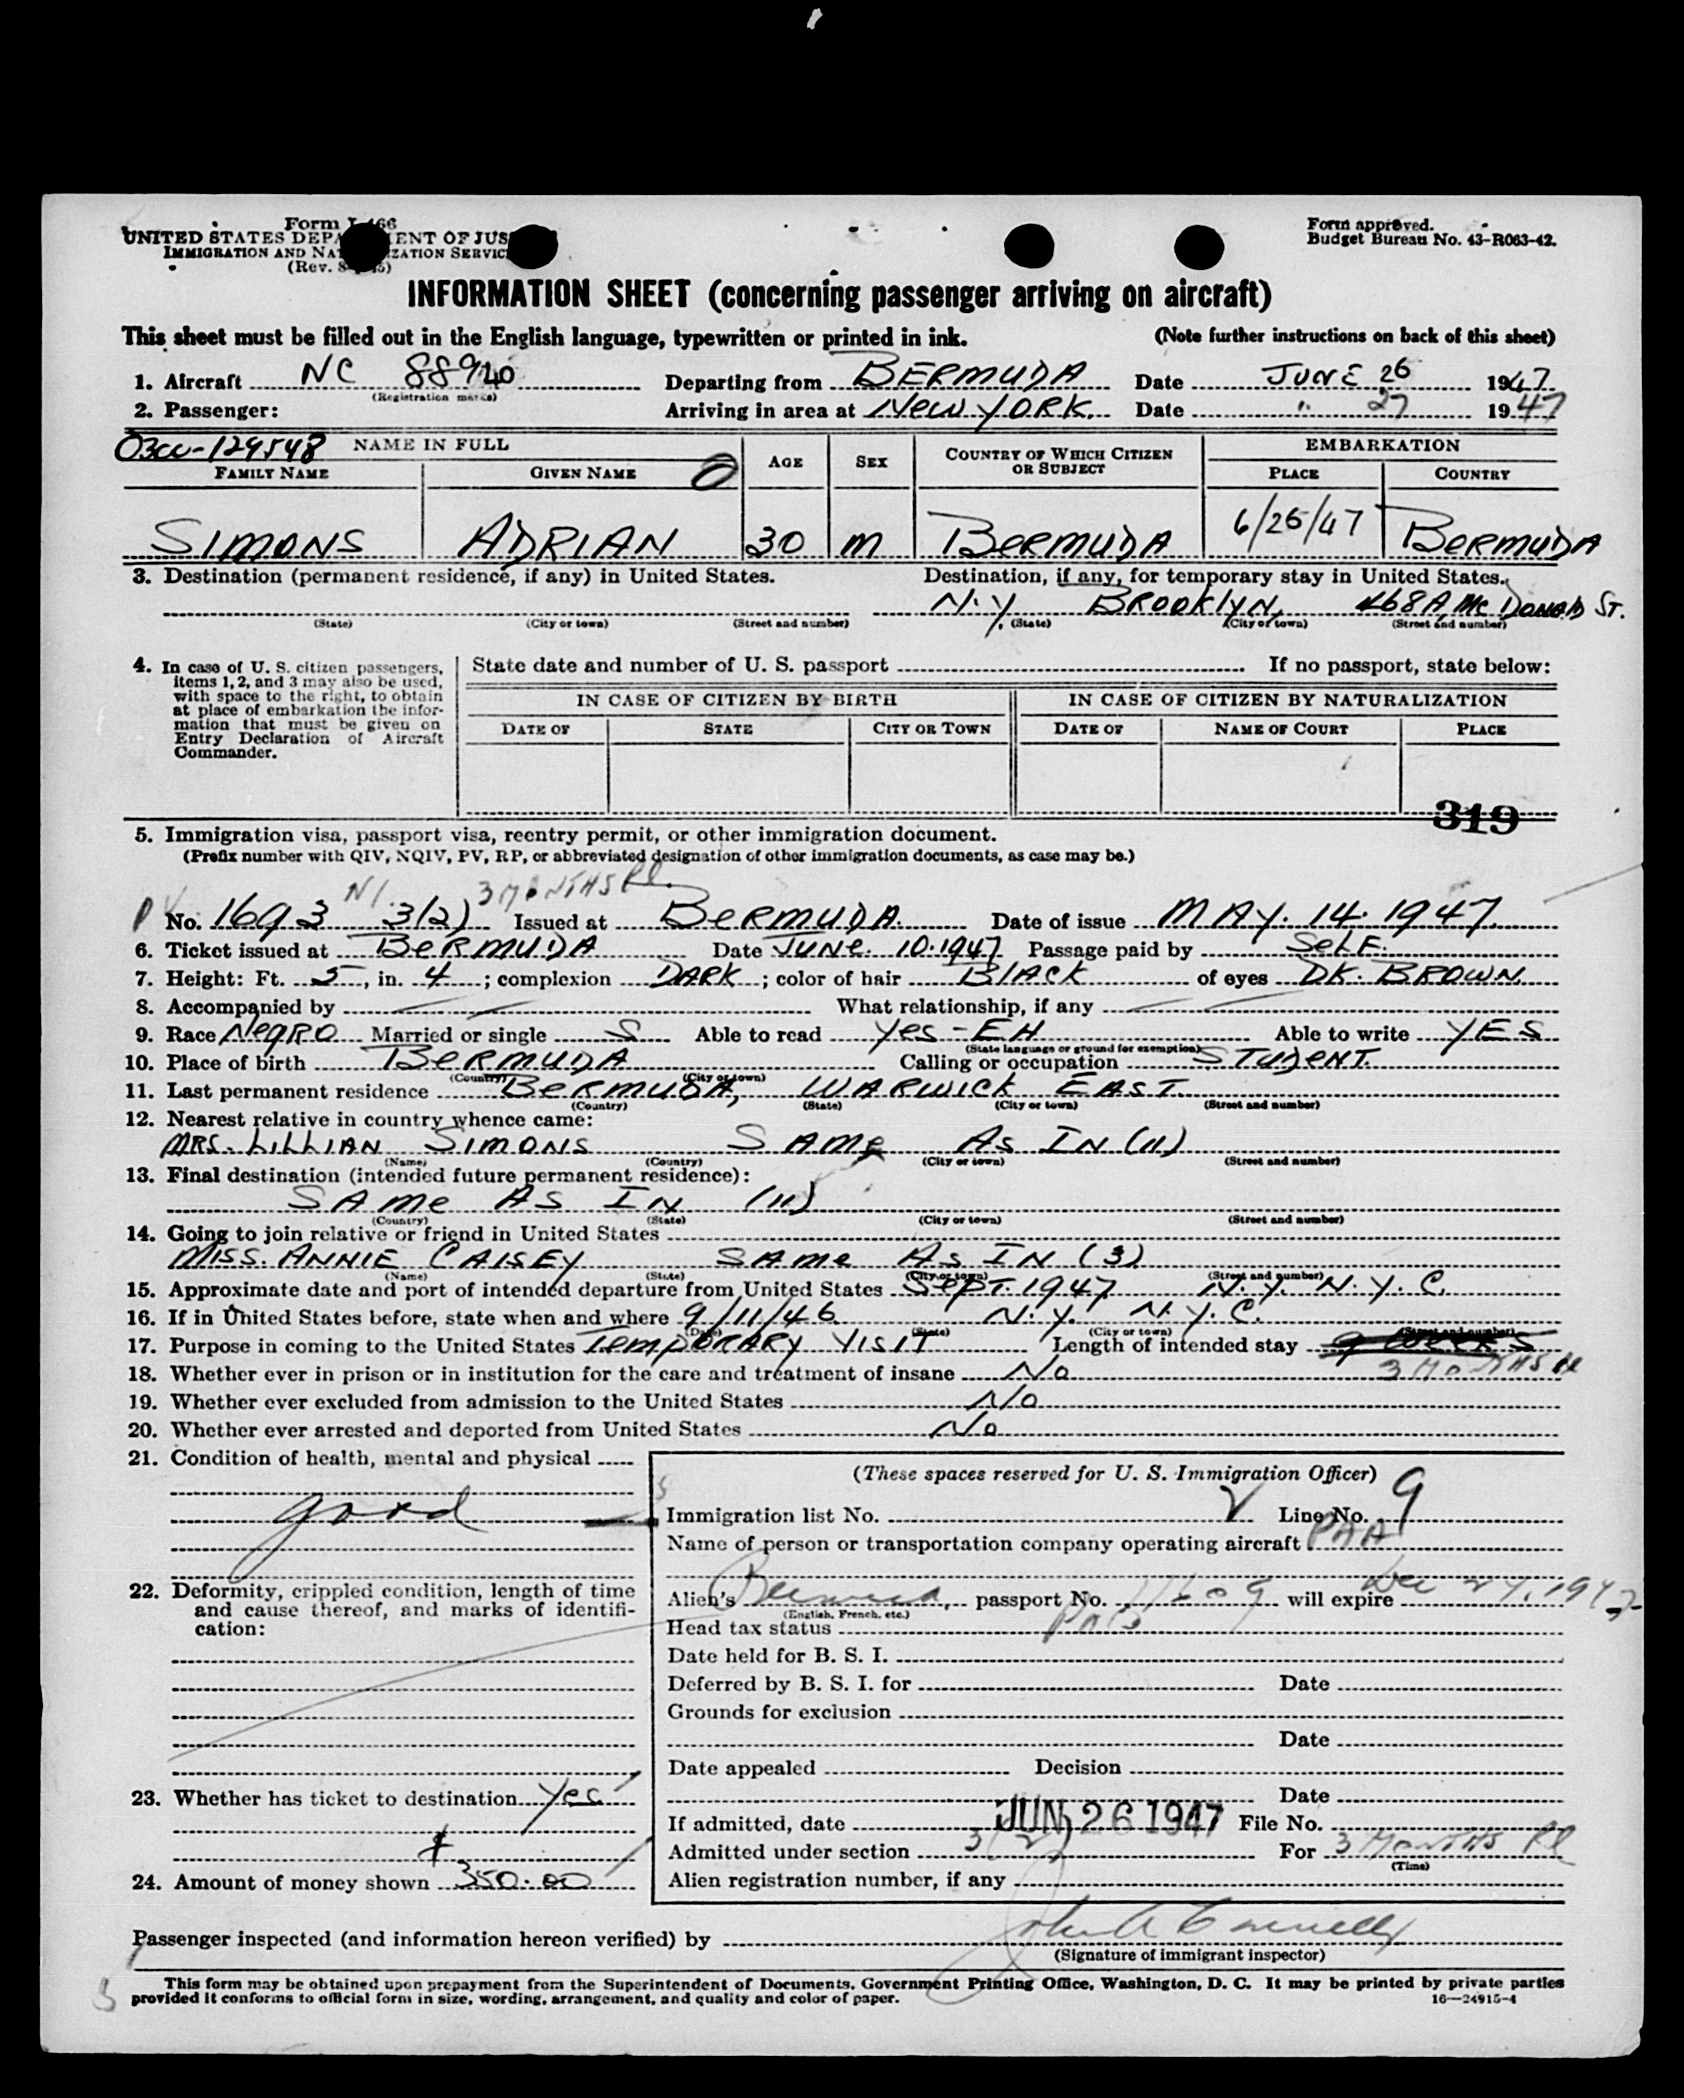 Form I-466
UNITED STATES DEPARTMENT OF JUSTICE
IMMIGRATION AND NATURALIZATION SERVICE
(Rev.
Form approved.
Budget Bureau No. 43-R063-42.
INFORMATION SHEET (concerning passenger arriving on aircraft)
This sheet must be filled out in the English language, typewritten or printed in ink. (Note further instructions on back of this sheet)
1. Aircraft NC 88940 Departing from BERMUDA Date JUNE 26 1947
(Registration marks)
2. Passenger: Arriving in area at NEW YORK. Date " 27 1947
0300-129548 NAME IN FULL AGE SEX COUNTRY OF WHICH CITIZEN OR SUBJECT EMBARKATION
FAMILY NAME GIVEN NAME PLACE COUNTRY
SIMONS ADRIAN 30 M BERMUDA 6/26/47 BERMUDA
3. Destination (permanent residence, if any) in United States. Destination, if any, for temporary stay in United States.
N.Y. BROOKLYN, 468A McDONALD ST.
(State) (City or town) (Street and number) (State) (City or town) (Street and number)
4. In case of U. S. citizen passengers,
items 1, 2, and 3 may also be used,
with space to the right, to obtain
at place of embarkation the infor-
mation that must be given on
Entry Declaration of Aircraft
Commander.
State date and number of U. S. passport If no passport, state below:
IN CASE OF CITIZEN BY BIRTH IN CASE OF CITIZEN BY NATURALIZATION
DATE OF STATE CITY OR TOWN DATE OF NAME OF COURT PLACE
319
5. Immigration visa, passport visa, reentry permit, or other immigration document.
(Prefix number with QIV, NQIV, PV, RP, or abbreviated designation of other immigration documents, as case may be.)
3 MONTHS Pl
PV No. 1693 3(2) Issued at BERMUDA. Date of issue MAY. 14. 1947.
6. Ticket issued at BERMUDA Date JUNE. 10. 1947 Passage paid by SELF.
7. Height: Ft. 5, in. 4; complexion DARK; color of hair BLACK of eyes DK. BROWN.
8. Accompanied by What relationship, if any
9. Race NEGRO Married or single S Able to read YES - EH Able to write YES
(State language or ground for exemption)
10. Place of birth BERMUDA Calling or occupation STUDENT.
(Country) (City or town)
11. Last permanent residence BERMUDA, WARWICK EAST.
(Country) (State) (City or town) (Street and number)
12. Nearest relative in country whence came:
MRS. LILLIAN SIMONS SAME AS IN (11)
(Name) (Country) (City or town) (Street and number)
13. Final destination (intended future permanent residence):
SAME AS IN (11)
(Country) (State) (City or town) (Street and number)
14. Going to join relative or friend in United States
MISS. ANNIE CAISEY SAME AS IN (3)
(Name) (State) (City or town) (Street and number)
15. Approximate date and port of intended departure from United States SEPT. 1947 N.Y. N.Y.C.
16. If in United States before, state when and where 9/11/46 N.Y. N.Y.C.
(Date) (State) (City or town) (Street and number)
17. Purpose in coming to the United States TEMPORARY VISIT Length of intended stay 9 WEEKS
3 MONTHS Pl
18. Whether ever in prison or in institution for the care and treatment of insane No
19. Whether ever excluded from admission to the United States No
20. Whether ever arrested and deported from United States No
21. Condition of health, mental and physical
good
22. Deformity, crippled condition, length of time
and cause thereof, and marks of identifi-
cation:
23. Whether has ticket to destination Yes
24. Amount of money shown $350.00
(These spaces reserved for U. S. Immigration Officer)
Immigration list No. Line No. 9
Name of person or transportation company operating aircraft PAA
Alien's Bermuda, passport No. will expire Dec 27, 1947
(English, French, etc.)
Head tax status Paid
Date held for B. S. I.
Deferred by B. S. I. for Date
Grounds for exclusion
Date
Date appealed Decision
Date
If admitted, date JUN 26 1947 File No.
Admitted under section 3(2) For 3 MONTHS Pl
(Time)
Alien registration number, if any
Passenger inspected (and information hereon verified) by
(Signature of immigrant inspector)
This form may be obtained upon prepayment from the Superintendent of Documents, Government Printing Office, Washington, D. C. It may be printed by private parties
provided it conforms to official form in size, wording, arrangement, and quality and color of paper. 16—24915-4